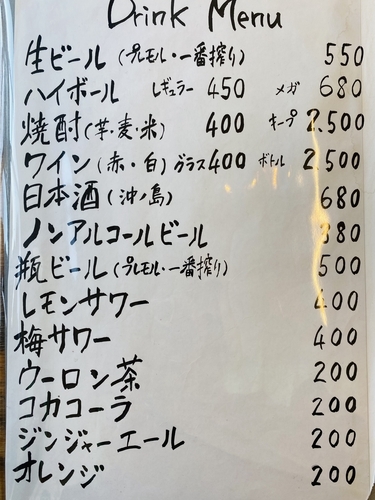 Drink Menu
生ビール(プレモル・一番搾り) 550
ハイボール レギュラー 450 メガ 680
焼酎(芋・麦・米) 400 キープ 2.500
ワイン(赤・白) グラス400 ボトル 2.500
日本酒(沖ノ島) 680
ノンアルコールビール 380
瓶ビール(プレモル・一番搾り) 500
レモンサワー 400
梅サワー 400
ウーロン茶 200
コカコーラ 200
ジンジャーエール 200
オレンジ 200